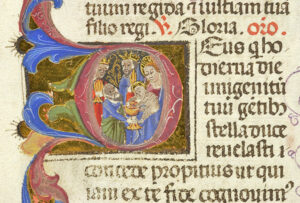 tuum regi da ⁊ iustitiam tuā
filio regis. ℟. Gloria. oro.
Eus q̇ ho
dierna die
unigenitū
tuū gētibꝰ
stella duce
revelasti
concede propitius ut qui
iam ex te fide cognovimꝰ